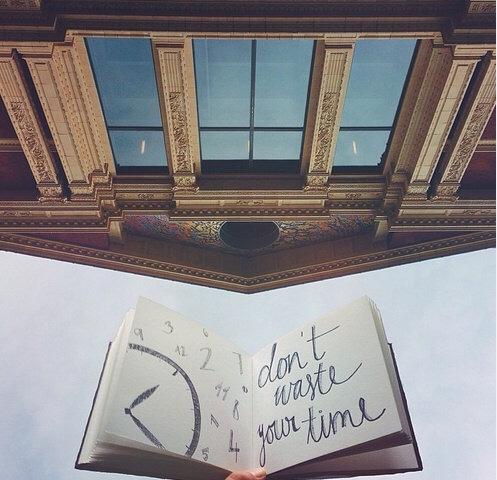 9 3 6
12 2 7
44 8
8
7
5 4
don't
waste
your time